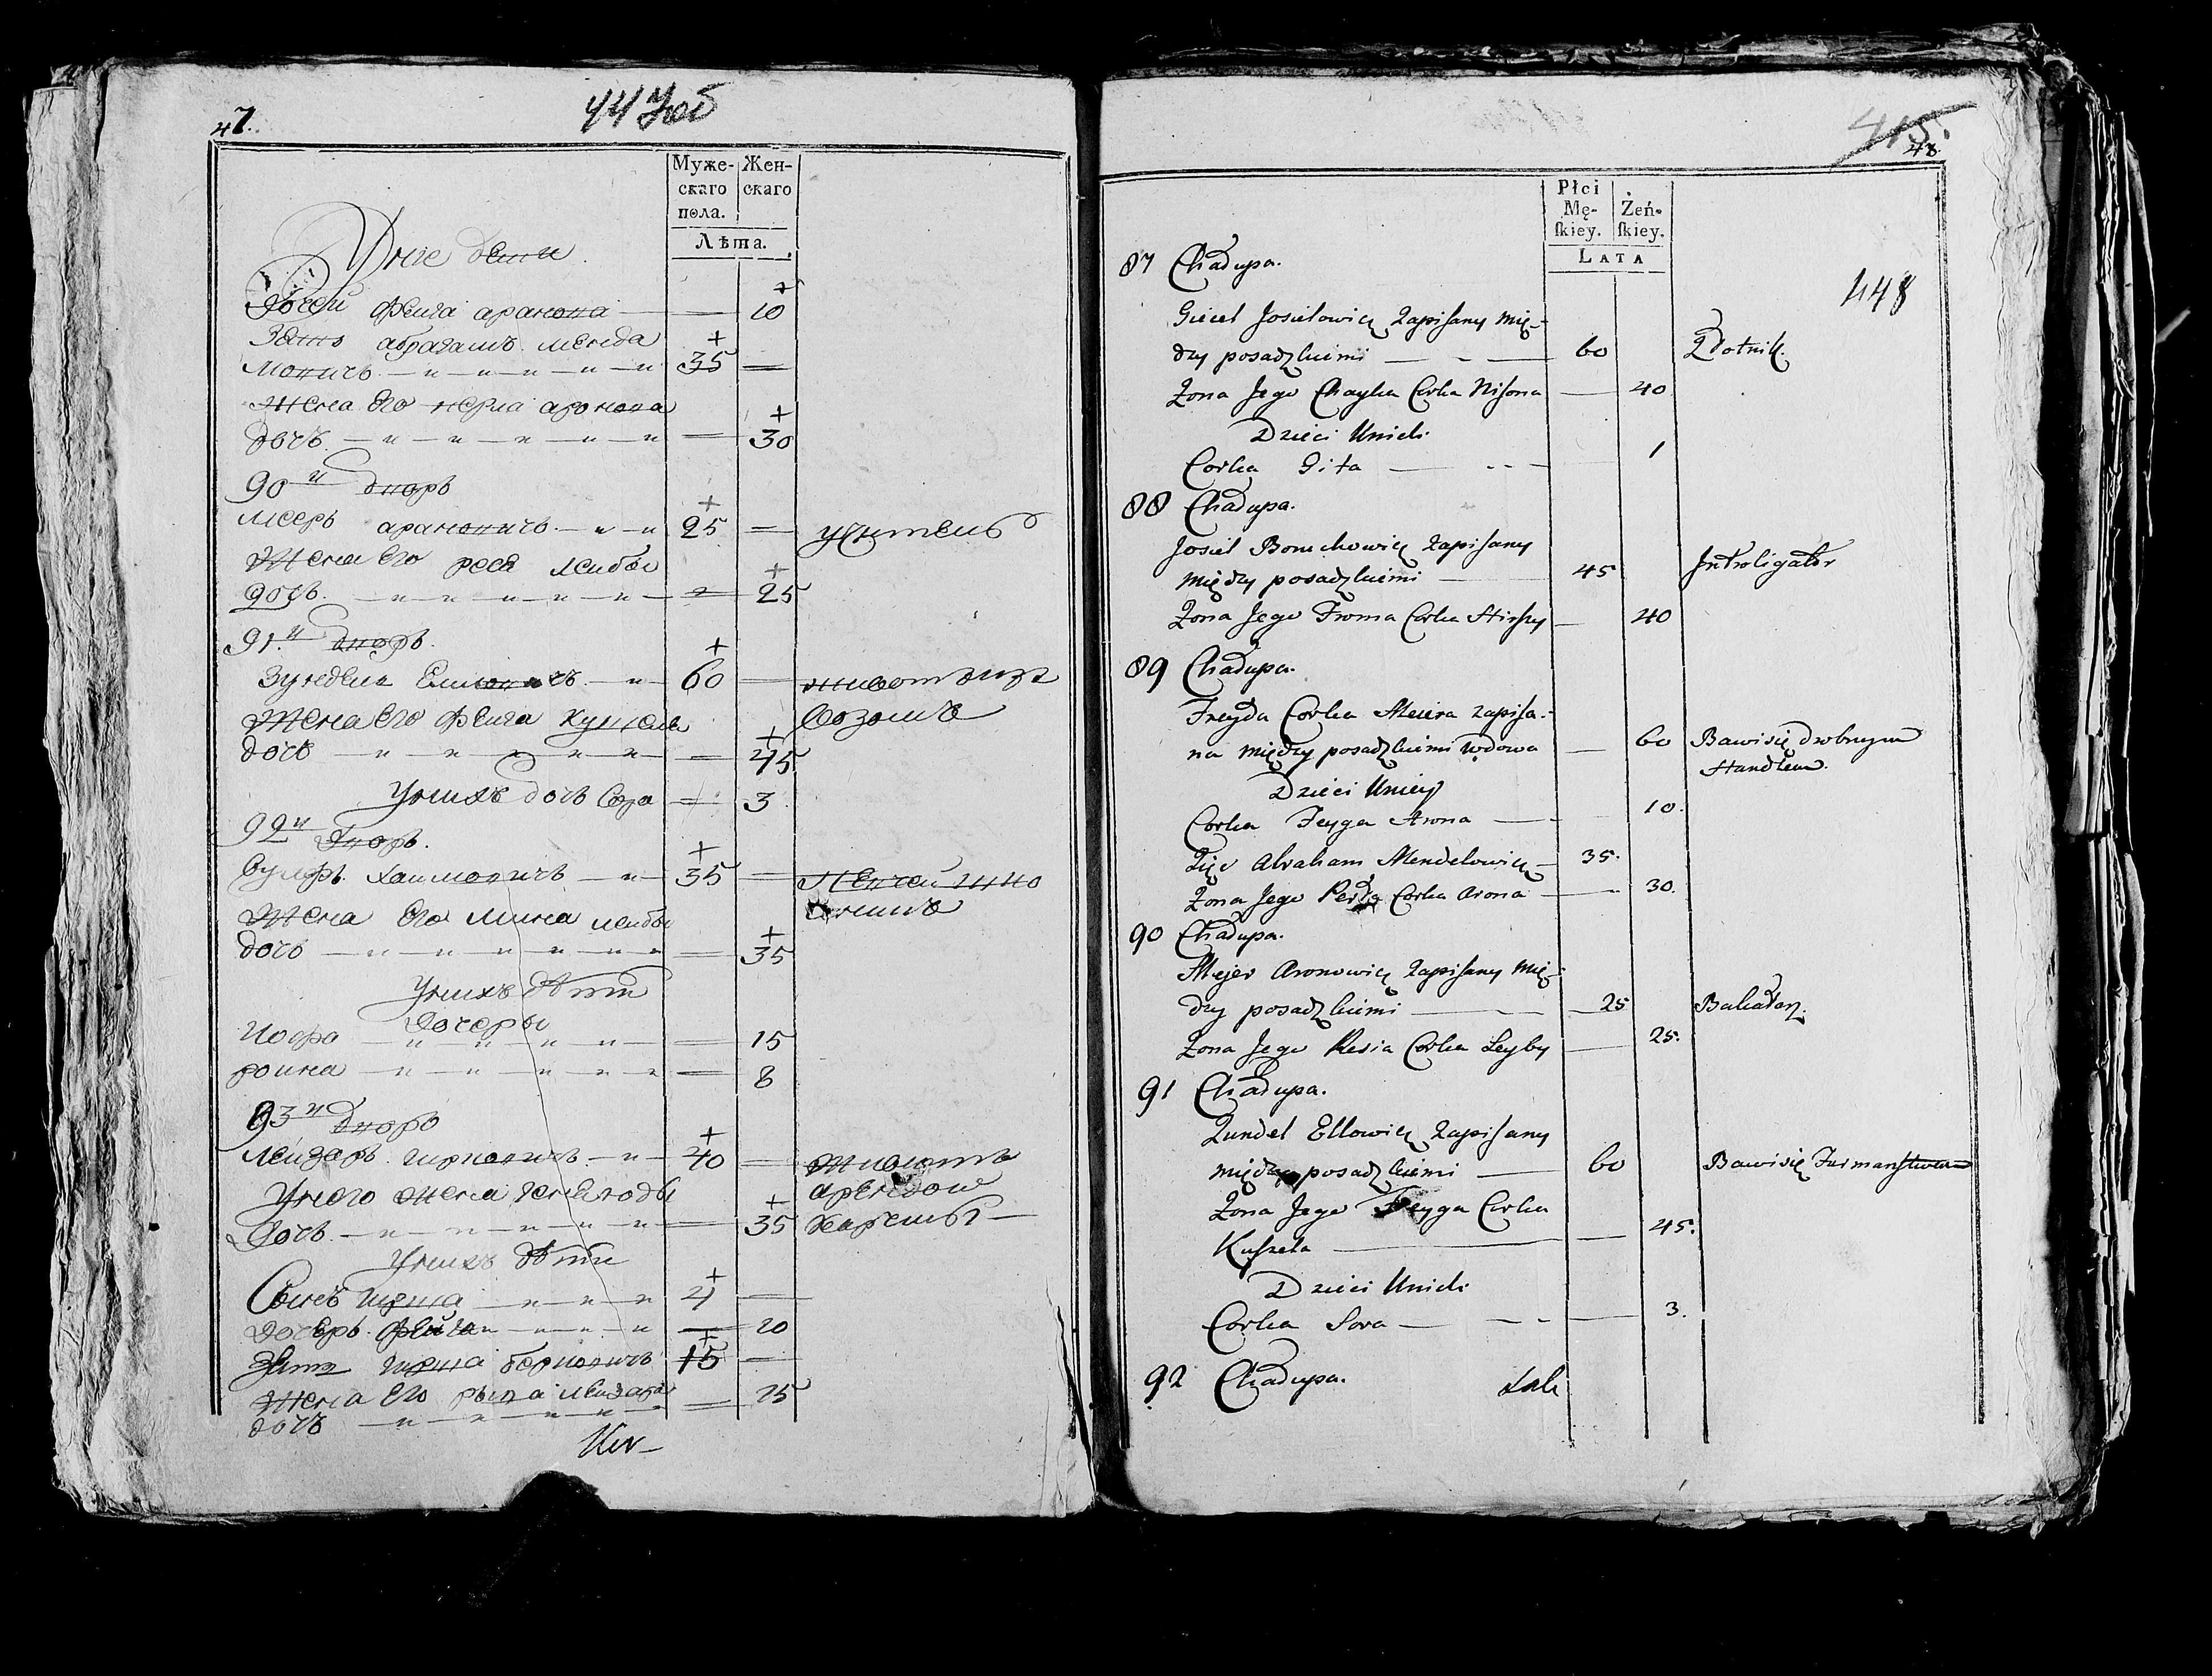 47.
447 об
Муже-
скаго
пола.
Жен-
скаго
Лѣта.
У нее дети
Дочери Фейга аранова 10
Зять абрагамъ менда
новичъ 35
Жена Его перла аронова
дочь 30
90й дворъ
мееръ арановичъ 25 учитель
Жена Его реся лейбы
дочь 25
91.й дворъ.
Зундель Елиовичъ 60 живот изъ
Жена Его Фейга кушеля возомъ
дочь 45
У нихъ дочь Сора 3
92й дворъ.
вульфъ хаимовичъ 35
Жена Его мина лейбы
дочь 35
У нихъ дѣти
Дочеры
Иофа 15
роина 8
93й дворъ
Лейзеръ гиршовичъ 40 живиотъ
У него жена генея годы арендою
Дочь 35 карчемы
У нихъ дѣти
Сынъ гирша 4
Дочеръ Фейга 20
Зять гирша берковичъ 15
жена Его рыва лейзера 25
дочь
415.
48.
448
Płci
Mę-
skiey.
Żeń-
skiey.
LATA
87 Chałupa.
Giecel Josielowicz zapisany mię-
dzy posadzkiemi 60 Złotnik.
Zona Jego Chayka Corka Nisona 40
Dzieci Unich
Corka Gita 1
88 Chałupa.
Josiel Boruchowicz zapisany
między posadzkiemi 45 Introligator
Zona Jego Froma Corka Hirszy 40
89 Chałupa.
Freyda Corka Meiera zapisa-
na między posadzkiemi wdowa 60 Bawi się drobnym
Handlem.
Dzieci Uniey
Corka Feyga Arona 10.
Zięć Abraham Mendelowicz 35.
Zona Jego Perla Corka Arona 30.
90 Chałupa.
Mejer Aronowicz zapisany mię-
dzy posadzkiemi 25 Bakałarz.
Zona Jego Resia Corka Leyby 25.
91 Chałupa.
Zundel Ellowicz zapisany
między posadzkiemi 60 Bawi się Furmanstwem
Zona Jego Feyga Corka
Kuszela 45.
Dzieci Unich
Corka Sora 3.
92 Chałupa.